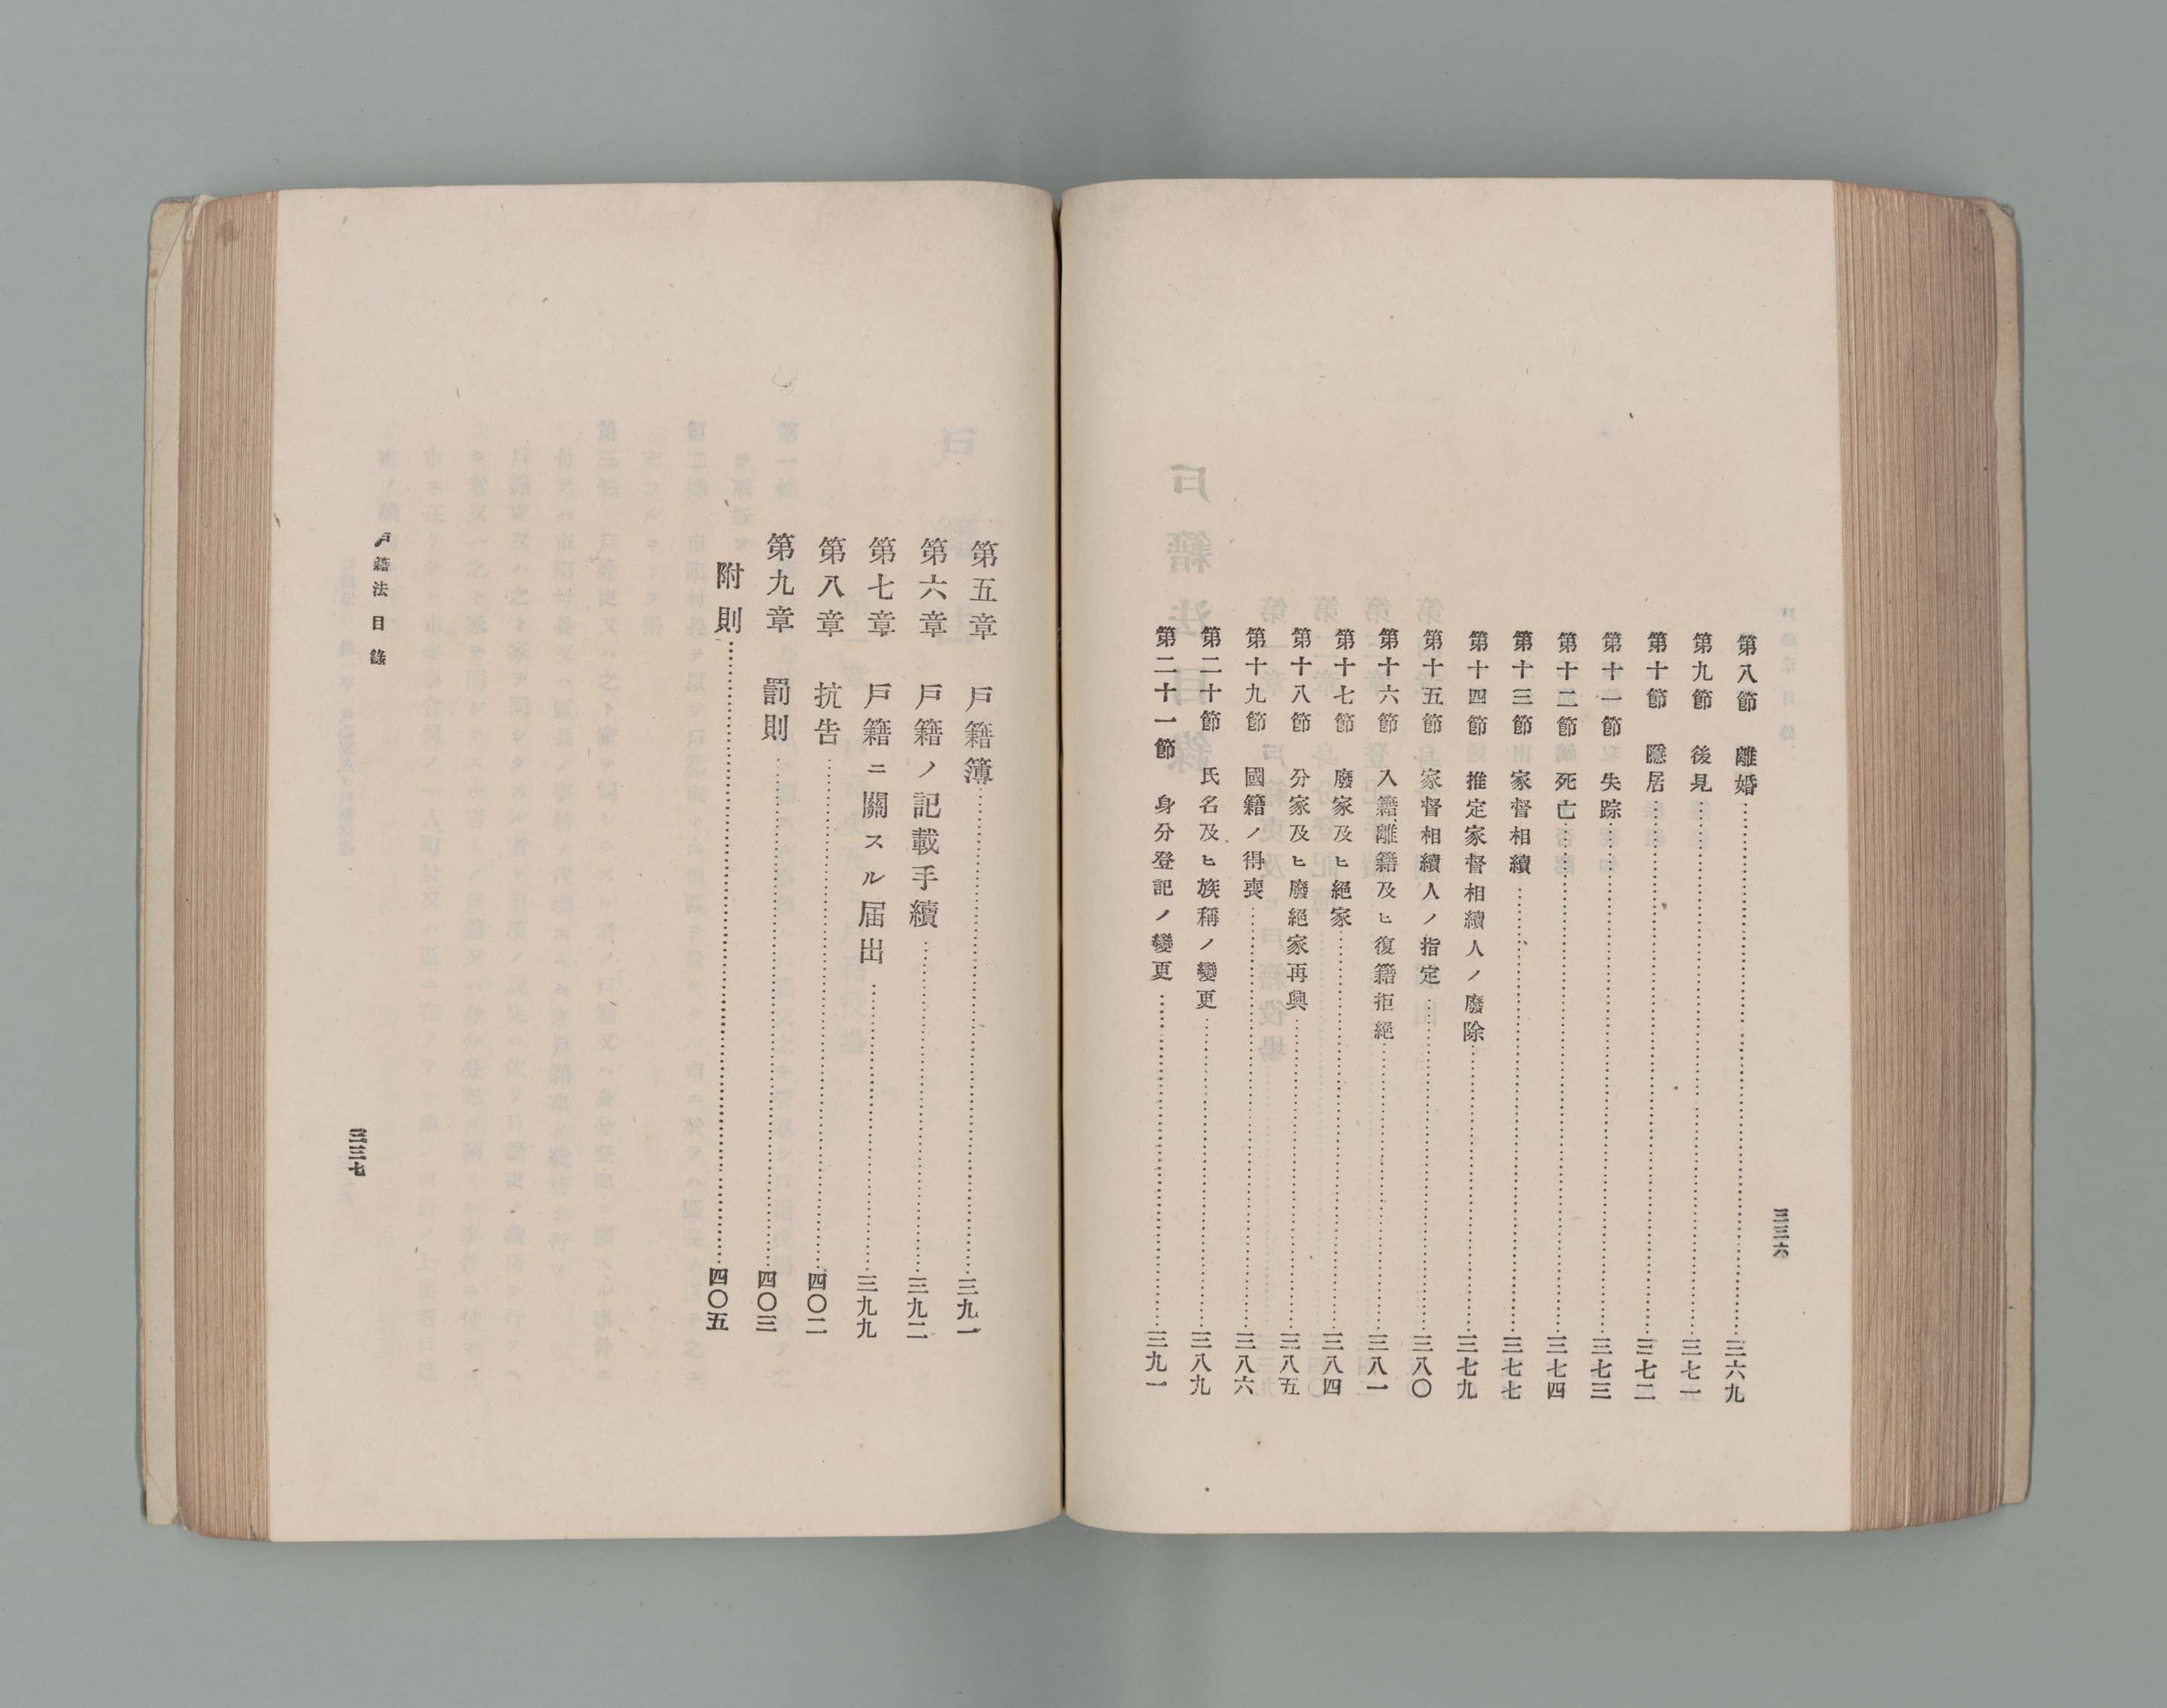 三三六
第八節　離婚……三六九
第九節　後見……三七一
第十節　隱居……三七二
第十一節　失踪……三七三
第十二節　死亡……三七四
第十三節　家督相續……三七七
第十四節　推定家督相續人ノ廢除……三七九
第十五節　家督相續人ノ指定……三八〇
第十六節　入籍離籍及ヒ復籍拒絕……三八一
第十七節　廢家及ヒ絕家……三八四
第十八節　分家及ヒ廢絕家再興……三八五
第十九節　國籍ノ得喪……三八六
第二十節　氏名及ヒ族稱ノ變更……三八九
第二十一節　身分登記ノ變更……三九一
第五章　戶籍簿……三九一
第六章　戶籍ノ記載手續……三九二
第七章　戶籍ニ關スル届出……三九九
第八章　抗告……四〇二
第九章　罰則……四〇三
附則……四〇五
戶籍法目錄
三三七